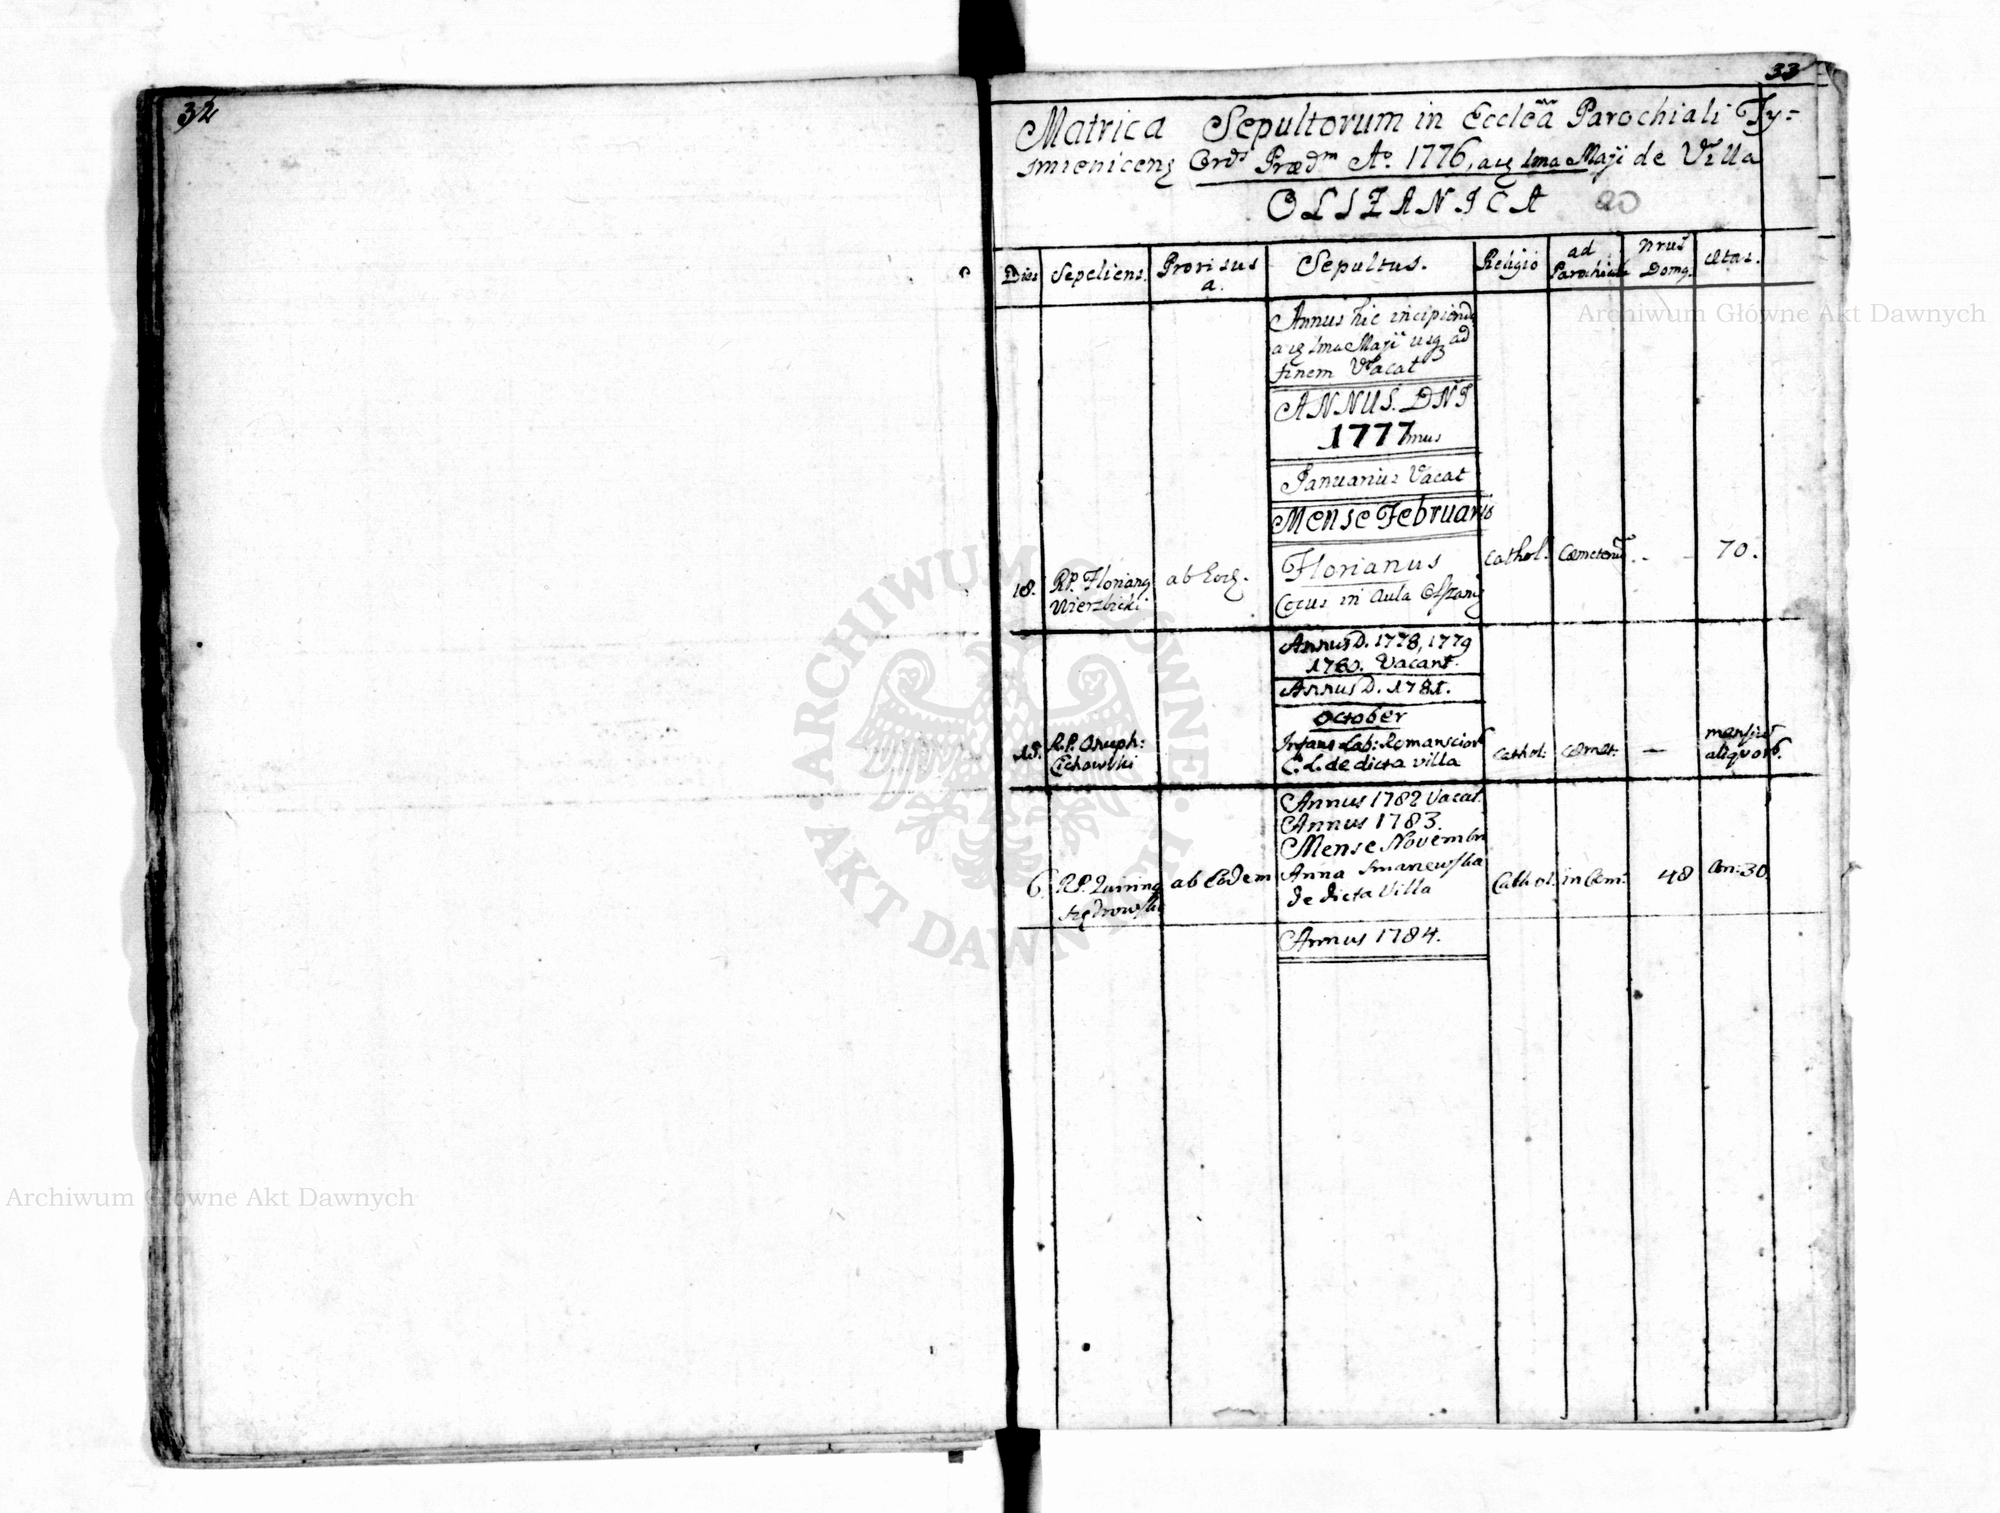 32
33
Matrica Sepultorum in Ecclēā Parochiali Ty=
smienicenſ Ordˢ Prædᵐ Aº 1776, a 1ma Maji de Villa
OLSZANICA 20
Dies
Sepeliens.
Provisus a.
Sepultus.
Religio
ad Parochiale
Nrus Domq.
Ætas.
Annus hic incipiendo
a 1ma Maji usq ad
finem Vacat
ANNUS. DNI
1777mus
Januarius Vacat
Mense Februario
18.
RP. Florianq
Wierzbicki.
ab Eodē.
Florianus
Cocus in Aula Olszanic
Cathol.
Cæmeteriū
-
70.
Annus D. 1778, 1779
1780. Vacant.
Annus D. 1781.
October
15.
R.P. Onuph:
Cichowski
Infans Lab: Romanscior
C. L. de dicta villa
Cathol:
Cæmet.
—
mensiū
aliquorū.
Annus 1782 Vacat.
Annus 1783.
Mense Novembri
6.
RP. Quirinq
ab Eodem
Anna
de dicta Villa
Cathol:
in Cem:
48
An: 30.
Annus 1784.
Archiwum Główne Akt Dawnych
Archiwum Główne Akt Dawnych
ARCHIWUM GŁÓWNE AKT DAWNYCH